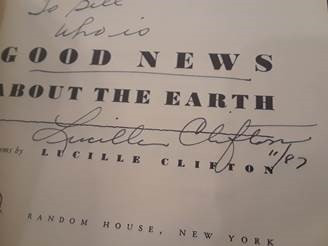 To Bill
who is
GOOD NEWS
ABOUT THE EARTH
Lucille Clifton
11/87
ems by LUCILLE CLIFTON
RANDOM HOUSE, NEW YORK